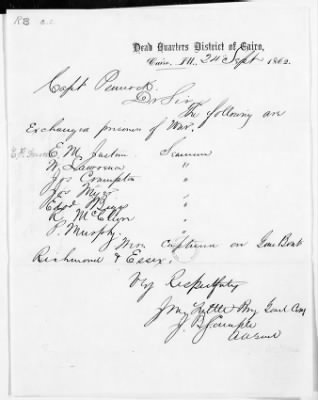 RB
Head Quarters District of Cairo,
Cairo, Ill., 24 Sept 1862.
Capt Pennock.
Dr Sir
The following are
Exchanged prisoners of War.
E. M. Justin Seaman
W Lawrence "
Jos Crumpton "
Jos Myer "
R. McElyn "
P. Murphy. "
Were captured on Gun Boat
Richmond & Essex.
Very Respectfully